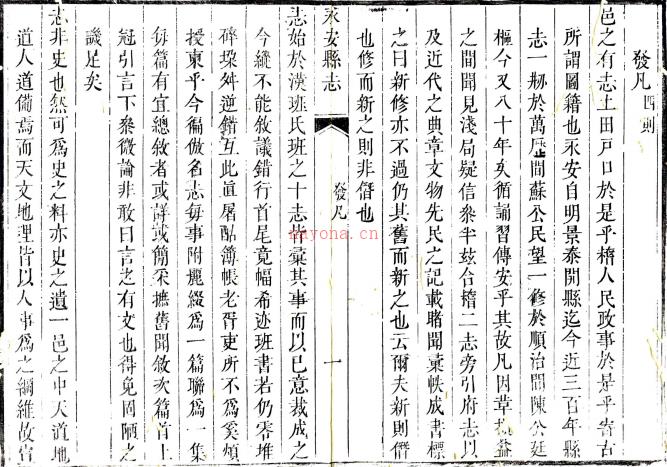 發凡四則
邑之有志土田戶口於是乎稽人民政事於是乎寄古
所謂圖籍也永安自明景泰開縣迄今近三百年縣
志一剏於萬曆間蘇公民望一修於順治間陳公廷
樞今又八十年矣循誦習傳安乎其故凡因草
之間聞見淺局疑信參半玆合稽二志旁引府志以
及近代之典章文物先民之記載睹聞彙帙成書標
之曰新修亦不過仍其舊而新之也云爾夫新則僭
也修而新之則非僭也
永安縣志
發凡
一
志始於漢班氏班之十志皆彙其事而以己意裁成之
今纔不能敘議錯行首尾竟幅希迹班書若仍零堆
碎垜舛逆錯互此眞屠酤簿帳老胥吏所不爲奚煩
授柬乎今徧倣名志每事附麗綴爲一篇聯爲一集
每篇有宜總敘者或詳或簡采摭舊聞敘次篇首上
冠引言下參微論非敢曰言之有文也得免固陋之
譏足矣
志非史也然可爲史之料亦史之遺一邑之中天道地
道人道備焉而天文地理皆以人事爲之綱維故
hayona.com